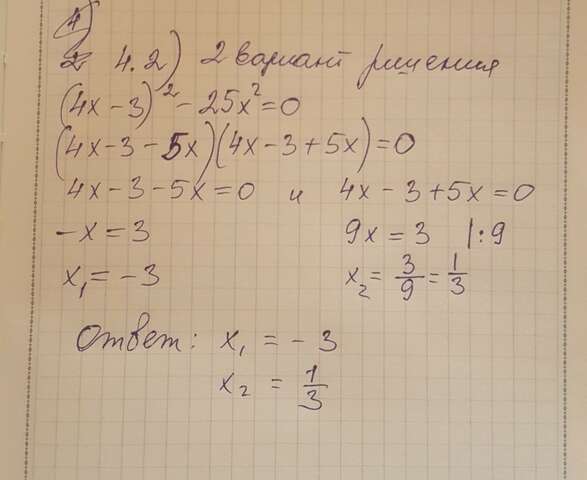 4)
4.2) 2 вариант решения
(4x-3)² - 25x² = 0
(4x-3-5x)(4x-3+5x)=0
4x-3-5x=0 и 4x-3+5x=0
-x=3 9x=3 |:9
x₁=-3 x₂=3/9=1/3
Ответ: x₁ = -3
x₂ = 1/3